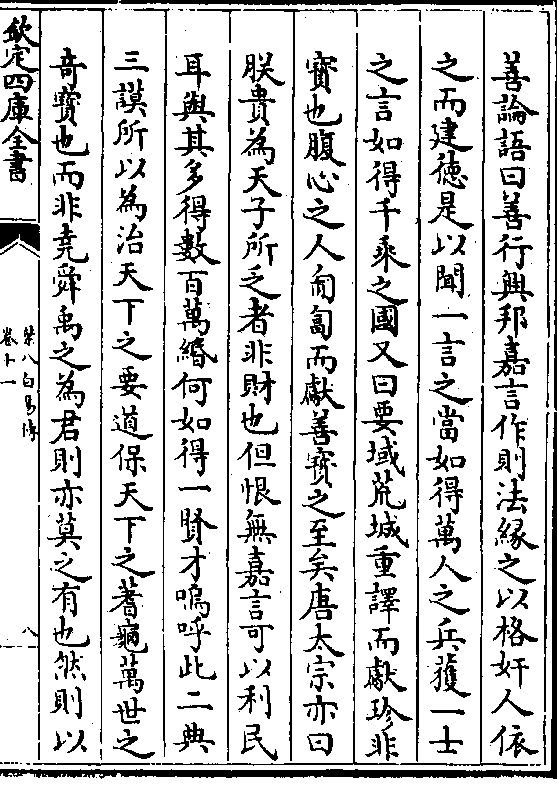 善論語曰善行興邦嘉言作則法緣之以格奸人依
之而建德是以聞一言之當如得萬人之兵獲一士
之言如得千乘之國又曰要域荒城重譯而獻珍非
寶也腹心之人匍匐而獻善寶之至矣唐太宗亦曰
朕貴為天子所乏者非財也但恨無嘉言可以利民
耳與其多得數百萬緡何如得一賢才嗚呼此二典
三謨所以為治天下之要道保天下之蓍龜萬世之
奇寶也而非堯舜禹之為君則亦莫之有也然則以
欽定四庫全書
卷十一
八